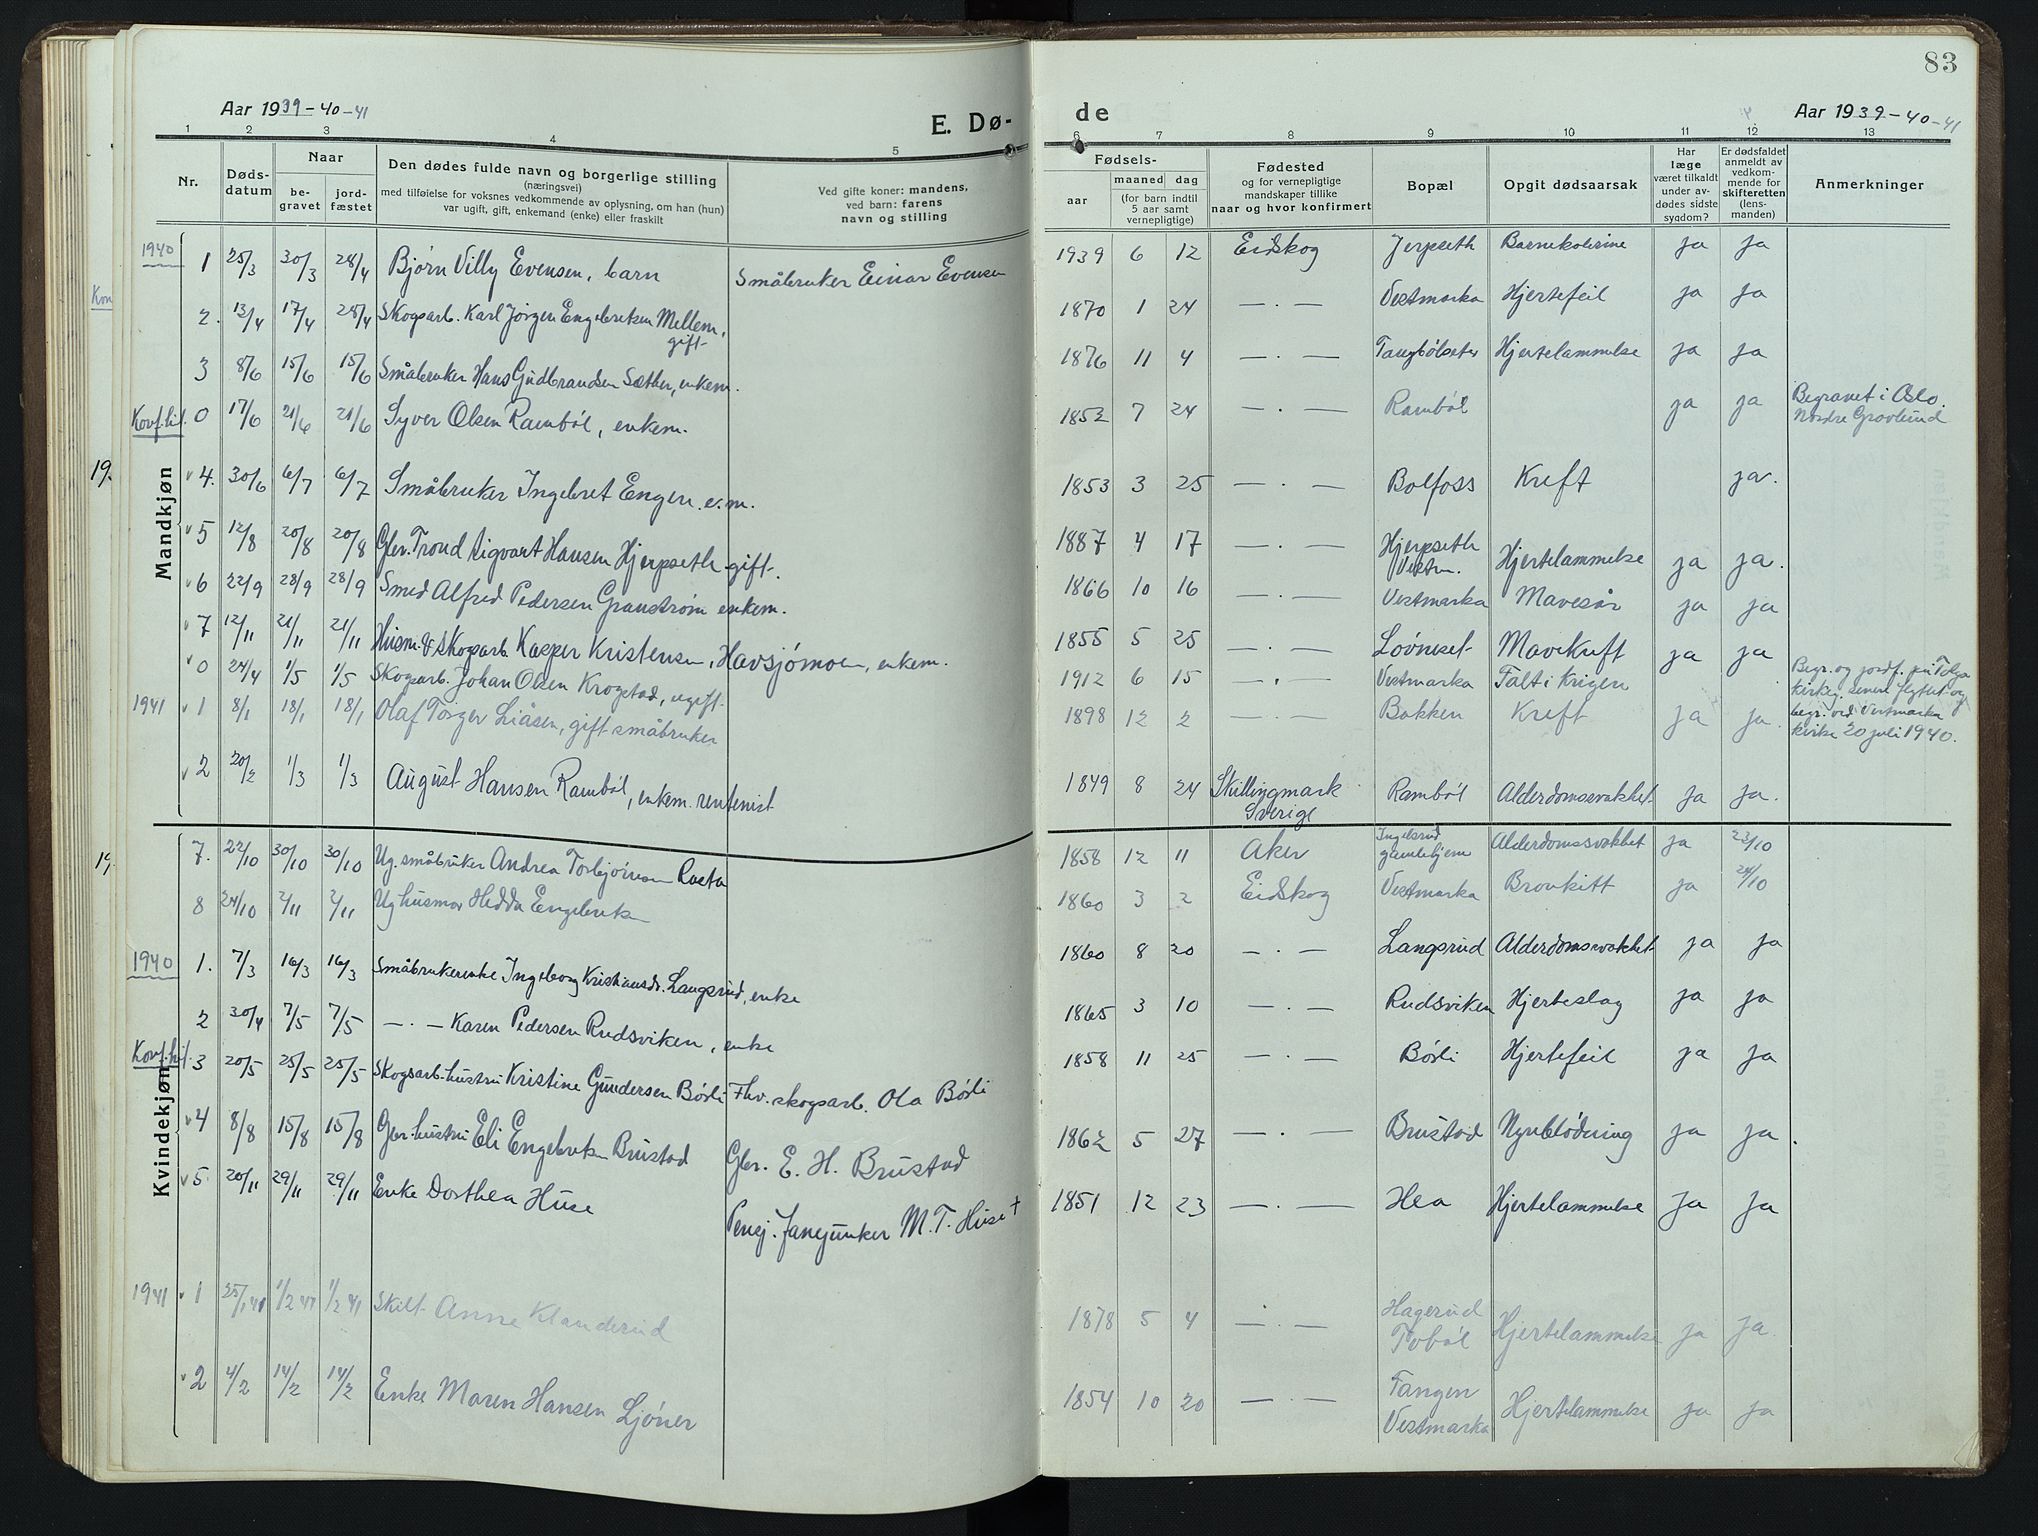 83
Aar 1939-40-41
E. Dø-
de
Aar 1939-40-41
1 2 3 4 5 6 7 8 9 10 11 12 13
Nr.
Dødsdatum
Naar
begravet
jordfæstet
Den dødes fulde navn og borgerlige stilling
(næringsvei)
med tilføielse for voksnes vedkommende av oplysning, om han (hun)
var ugift, gift, enkemand (enke) eller fraskilt
Ved gifte koner: mandens,
ved barn: farens
navn og stilling
Fødsels-
aar
maaned dag
(for barn indtil
5 aar samt
vernepligtige)
Fødested
og for vernepligtige
mandskaper tillike
naar og hvor konfirmert
Bopæl
Opgit dødsaarsak
Har
læge
været tilkaldt
under av-
dødes sidste
sygdom?
Er dødsfaldet
anmeldt av
vedkom-
mende for
skifteretten
(lens-
manden)
Anmerkninger
Mandkjøn
1940 1 25/3 30/3 28/4 Bjørn Villy Evensen, barn Småbruker Einar Evensen 1939 6 12 Eidskog Jerpseth Barnekolerine ja ja
2. 13/4 17/4 28/4 Skogsarb. Karl Jørgen Engebretsen Mellem, gift 1870 1 24 — . — Vestmarka Hjertefeil ja ja
3 8/6 15/6 15/6 Småbruker Hans Gudbrandsen Sæther, enkem. 1876 11 4 — . — Tangbølseter Hjertelammelse ja ja
Konf.hit. 0 17/6 21/6 21/6 Syver Olsen Rambøl, enkem. 1852 7 24 — . — Rambøl ja ja Begravet i Oslo. Nordre Gravlund
4. 30/6 6/7 6/7 Småbruker Ingebret Engen e.m. 1853 3 25 — . — Bolfoss Kreft ja.
5 12/8 20/8 20/8 Gbr. Trond Sigvart Hansen Hjerpseth gift. 1887 4 17 — . — Hjerpseth Vestm. Hjertelammelse ja ja.
6 22/9 28/9 28/9 Smed Alfred Pedersen Granstrøm enkem. 1866 10 16 — . — Vestmarka Mavesår ja ja
7 12/11 21/11 21/11 Husm. & skogsarb. Kasper Kristensen, Havsjømoen, enkem. 1855 5 25 — . — Løvneset Mavekreft ja ja
0 24/4 1/5 1/5 Skogsarb. Johan Olsen Krogstad, ugift. 1912 6 15 — . — Vestmarka Falt i Krigen Begr. og jordf. på Tolga kirkeg. senere flyttet og begr. ved Vestmarka kirke 20 juli 1940.
1941 1 8/1 18/1 18/1 Olaf Torger Liåsen, gift småbruker 1898 12 2 — . — Bakken Kreft ja ja.
2 20/2 1/3 1/3 August Hansen Rambøl, enkem. rentenist 1849 8 24 Skillingmark Sverige Rambøl Alderdomssvakhet ja ja.
Kvindekjøn
7. 22/10 30/10 30/10 Ug. småbruker Andrea Torbjørnsen Rasta 1858 12 11 Aker Ingelsrud gamlehjem Alderdomssvakhet ja 23/10
8 24/10 2/11 2/11 Ug husmor Hedda Engebretsen 1860 3 2 Eidskog Vestmarka Bronkitt ja 24/10
1940 1. 7/3 16/3 16/3 Småbrukerenke Ingeborg Kristiansdr. Langsrud, enke 1860 8 20 — . — Langsrud Alderdomssvakhet ja ja
2 30/4 7/5 7/5 — . — Karen Pedersen Rudsviken, enke 1865 3 10 — . — Rudsviken Hjerteslag ja ja
Konf.hit. 3 20/5 25/5 25/5 Skogsarb.hustru Kristine Gundersen Børli Fhv. skogsarb. Ola Børli 1858 11 25 — . — Børli Hjertefeil ja ja
4 8/8 15/8 15/8 Gbr. hustru Eli Engebretsen Brustad Gbr. E. H. Brustad 1862 5 27 — . — Brustad Nyreblødning ja ja.
5 20/11 29/11 29/11 Enke Dorthea Huse Pensj. fanejunker M. T. Huse + 1851 12 23 — . — Hea Hjertelammelse ja ja
1941 1 25/1 41 1/2 41 1/2 41 Skilt Anne Klanderud 1878 5 4 — . — Hagerud Tobøl Hjertelammelse ja ja.
2 4/2 14/2 14/2 Enke Maren Hansen Ljøner 1854 10 20 — . — Tangen Vestmarka Hjertelammelse ja ja